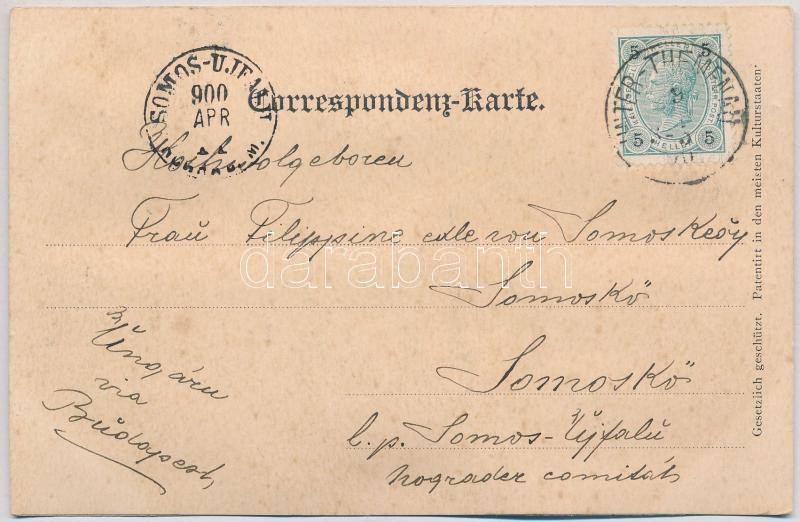 SOMOS-UJFALU
900
APR
Correspondenz-Karte.
UNTER-THEMENAU
5 5
HELLER
5 5
Hochwolgeboren
Frau Filippine edle von Somoskeöy
darabanth
Somoskö
Somoskö
l. p. Somos-Ujfalú
nograder comitát
Ungarn
via
Budapest
Gesetzlich geschützt. Patentirt in den meisten Kulturstaaten